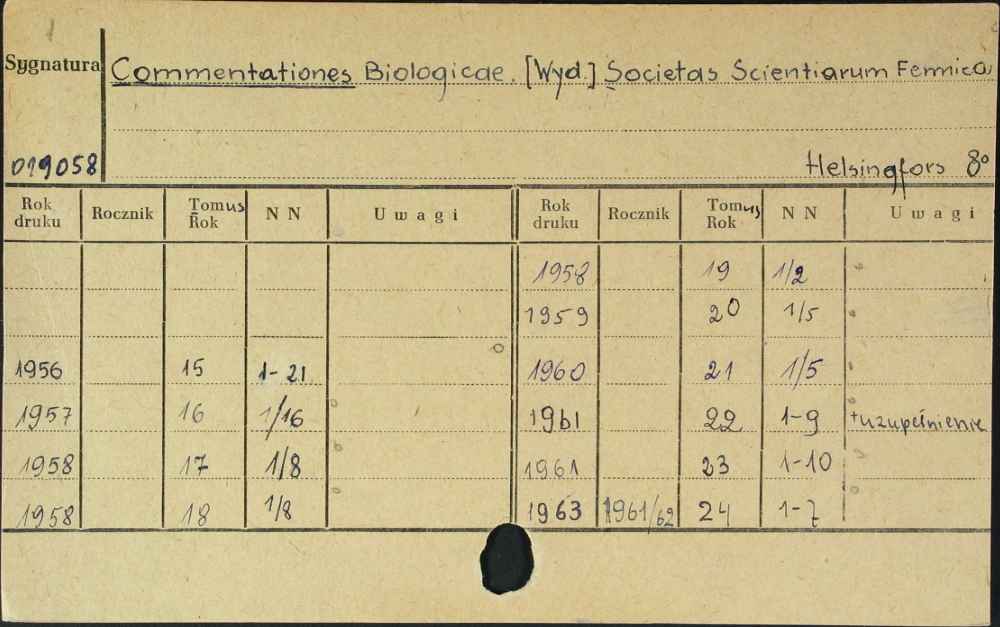 Sygnatura Commentationes Biologicae. [Wyd.] Societas Scientiarum Fennica
019058 Helsingfors 8°
Rok druku Rocznik Tomus Rok NN Uwagi Rok druku Rocznik Tomus Rok NN Uwagi
1958 19 1/2
1959 20 1/5
1956 15 1-21 1960 21 1/5
1957 16 1/16 1961 22 1-9 +uzupełnienie
1958 17 1/8 1961 23 1-10
1958 18 1/8 1963 1961/62 24 1-7